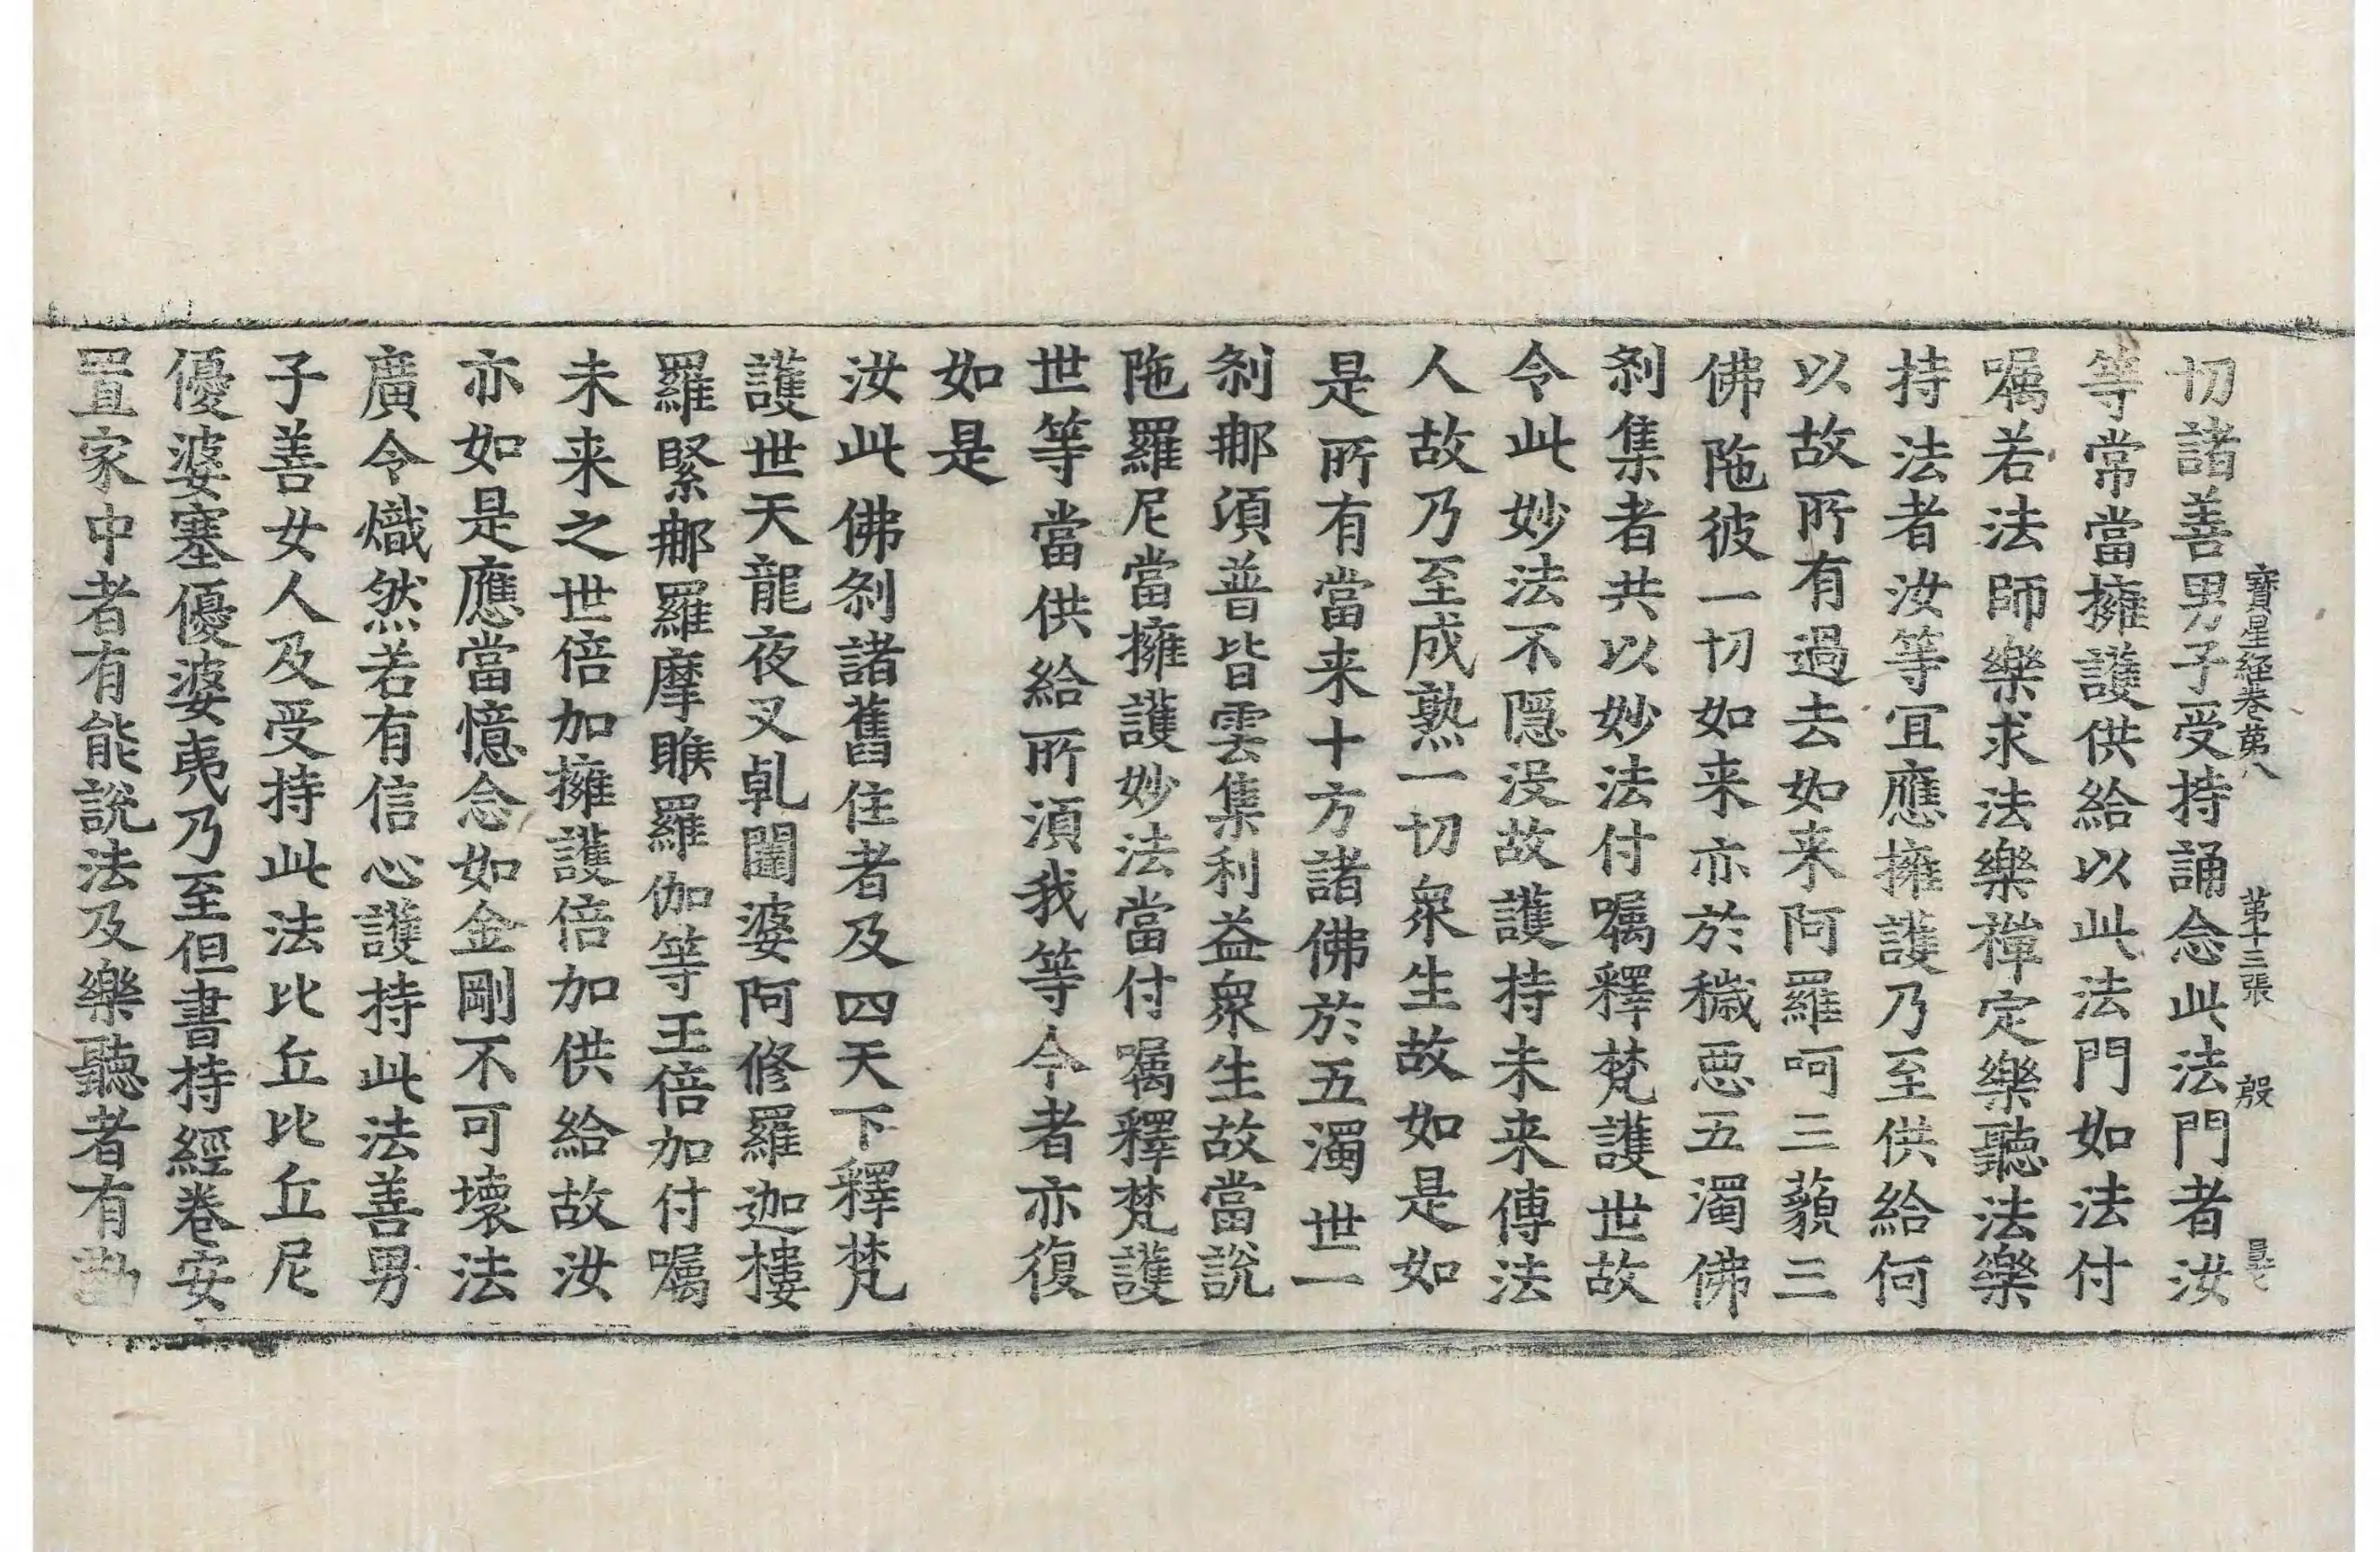 寶星経卷苐八 苐十三張 殷
切諸善男子受持誦念此法門者汝
等常當擁護供給以此法門如法付
囑若法師樂求法樂禅定樂聽法樂
持法者汝等宜應擁護乃至供給何
以故所有過去如来阿羅呵三藐三
佛陁彼一切如来亦於穢悪五濁佛
刹集者共以妙法付囑釋梵護世故
令此妙法不隠没故護持未来傳法
人故乃至成熟一切衆生故如是如
是所有當来十方諸佛於五濁世一
刹那湏普皆雲集利益衆生故當說
陁羅尼當擁護妙法當付囑釋梵護
世等當供給所湏我等今者亦復
如是
汝此佛刹諸舊住者及四天下釋梵
護世天龍夜叉乹闥婆阿修羅迦樓
羅緊那羅摩睺羅伽等王倍加付囑
未来之世倍加擁護倍加供給故汝
亦如是應當憶念如金剛不可壊法
廣令熾然若有信心護持此法善男
子善女人及受持此法比丘比丘尼
優婆塞優婆夷乃至但書持經卷安
置家中者有能說法及樂聽者有